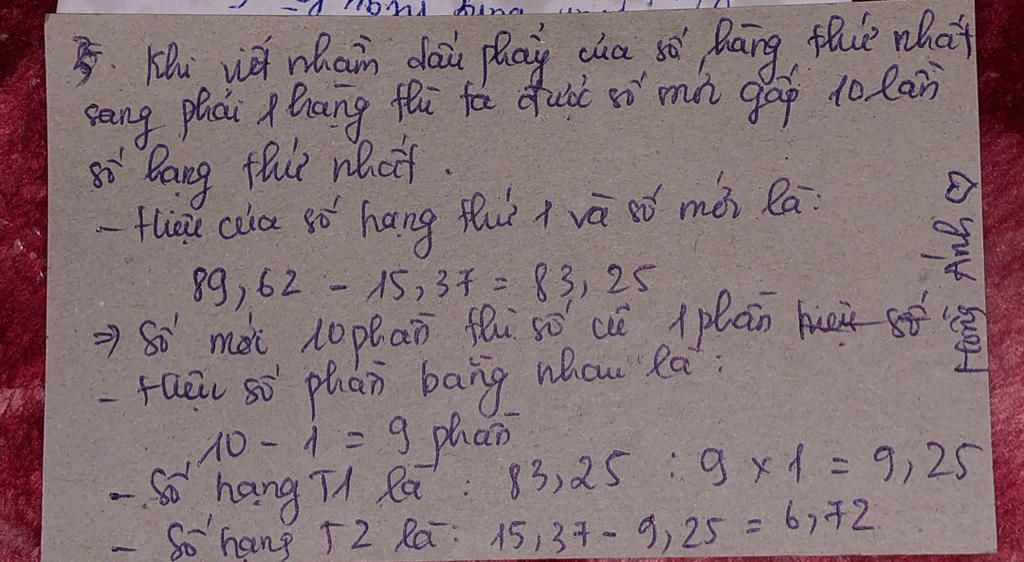 5. Khi viết nhầm dấu phẩy của số hàng thứ nhất
sang phải 1 hàng thì ta được số mới gấp 10 lần
số hạng thứ nhất.
- Hiệu của số hạng thứ 1 và số mới là:
89,62 - 15,37 = 83,25
⇒ Số mới 10 phần thì số cũ 1 phần hiệu số
- Hiệu số phần bằng nhau là:
10 - 1 = 9 phần
- Số hạng T1 là: 83,25 : 9 x 1 = 9,25
- Số hạng T2 là: 15,37 - 9,25 = 6,72
Hồng Ánh ♡